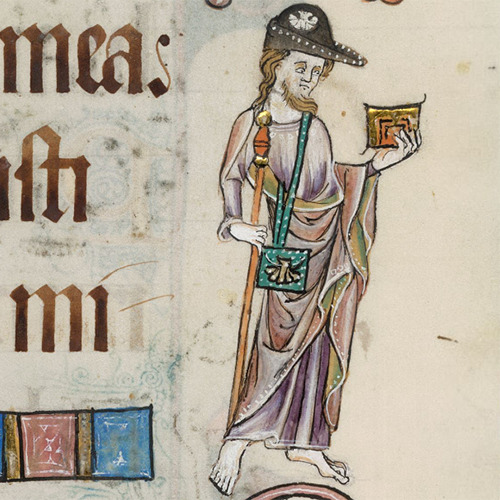 meas
isti
mi